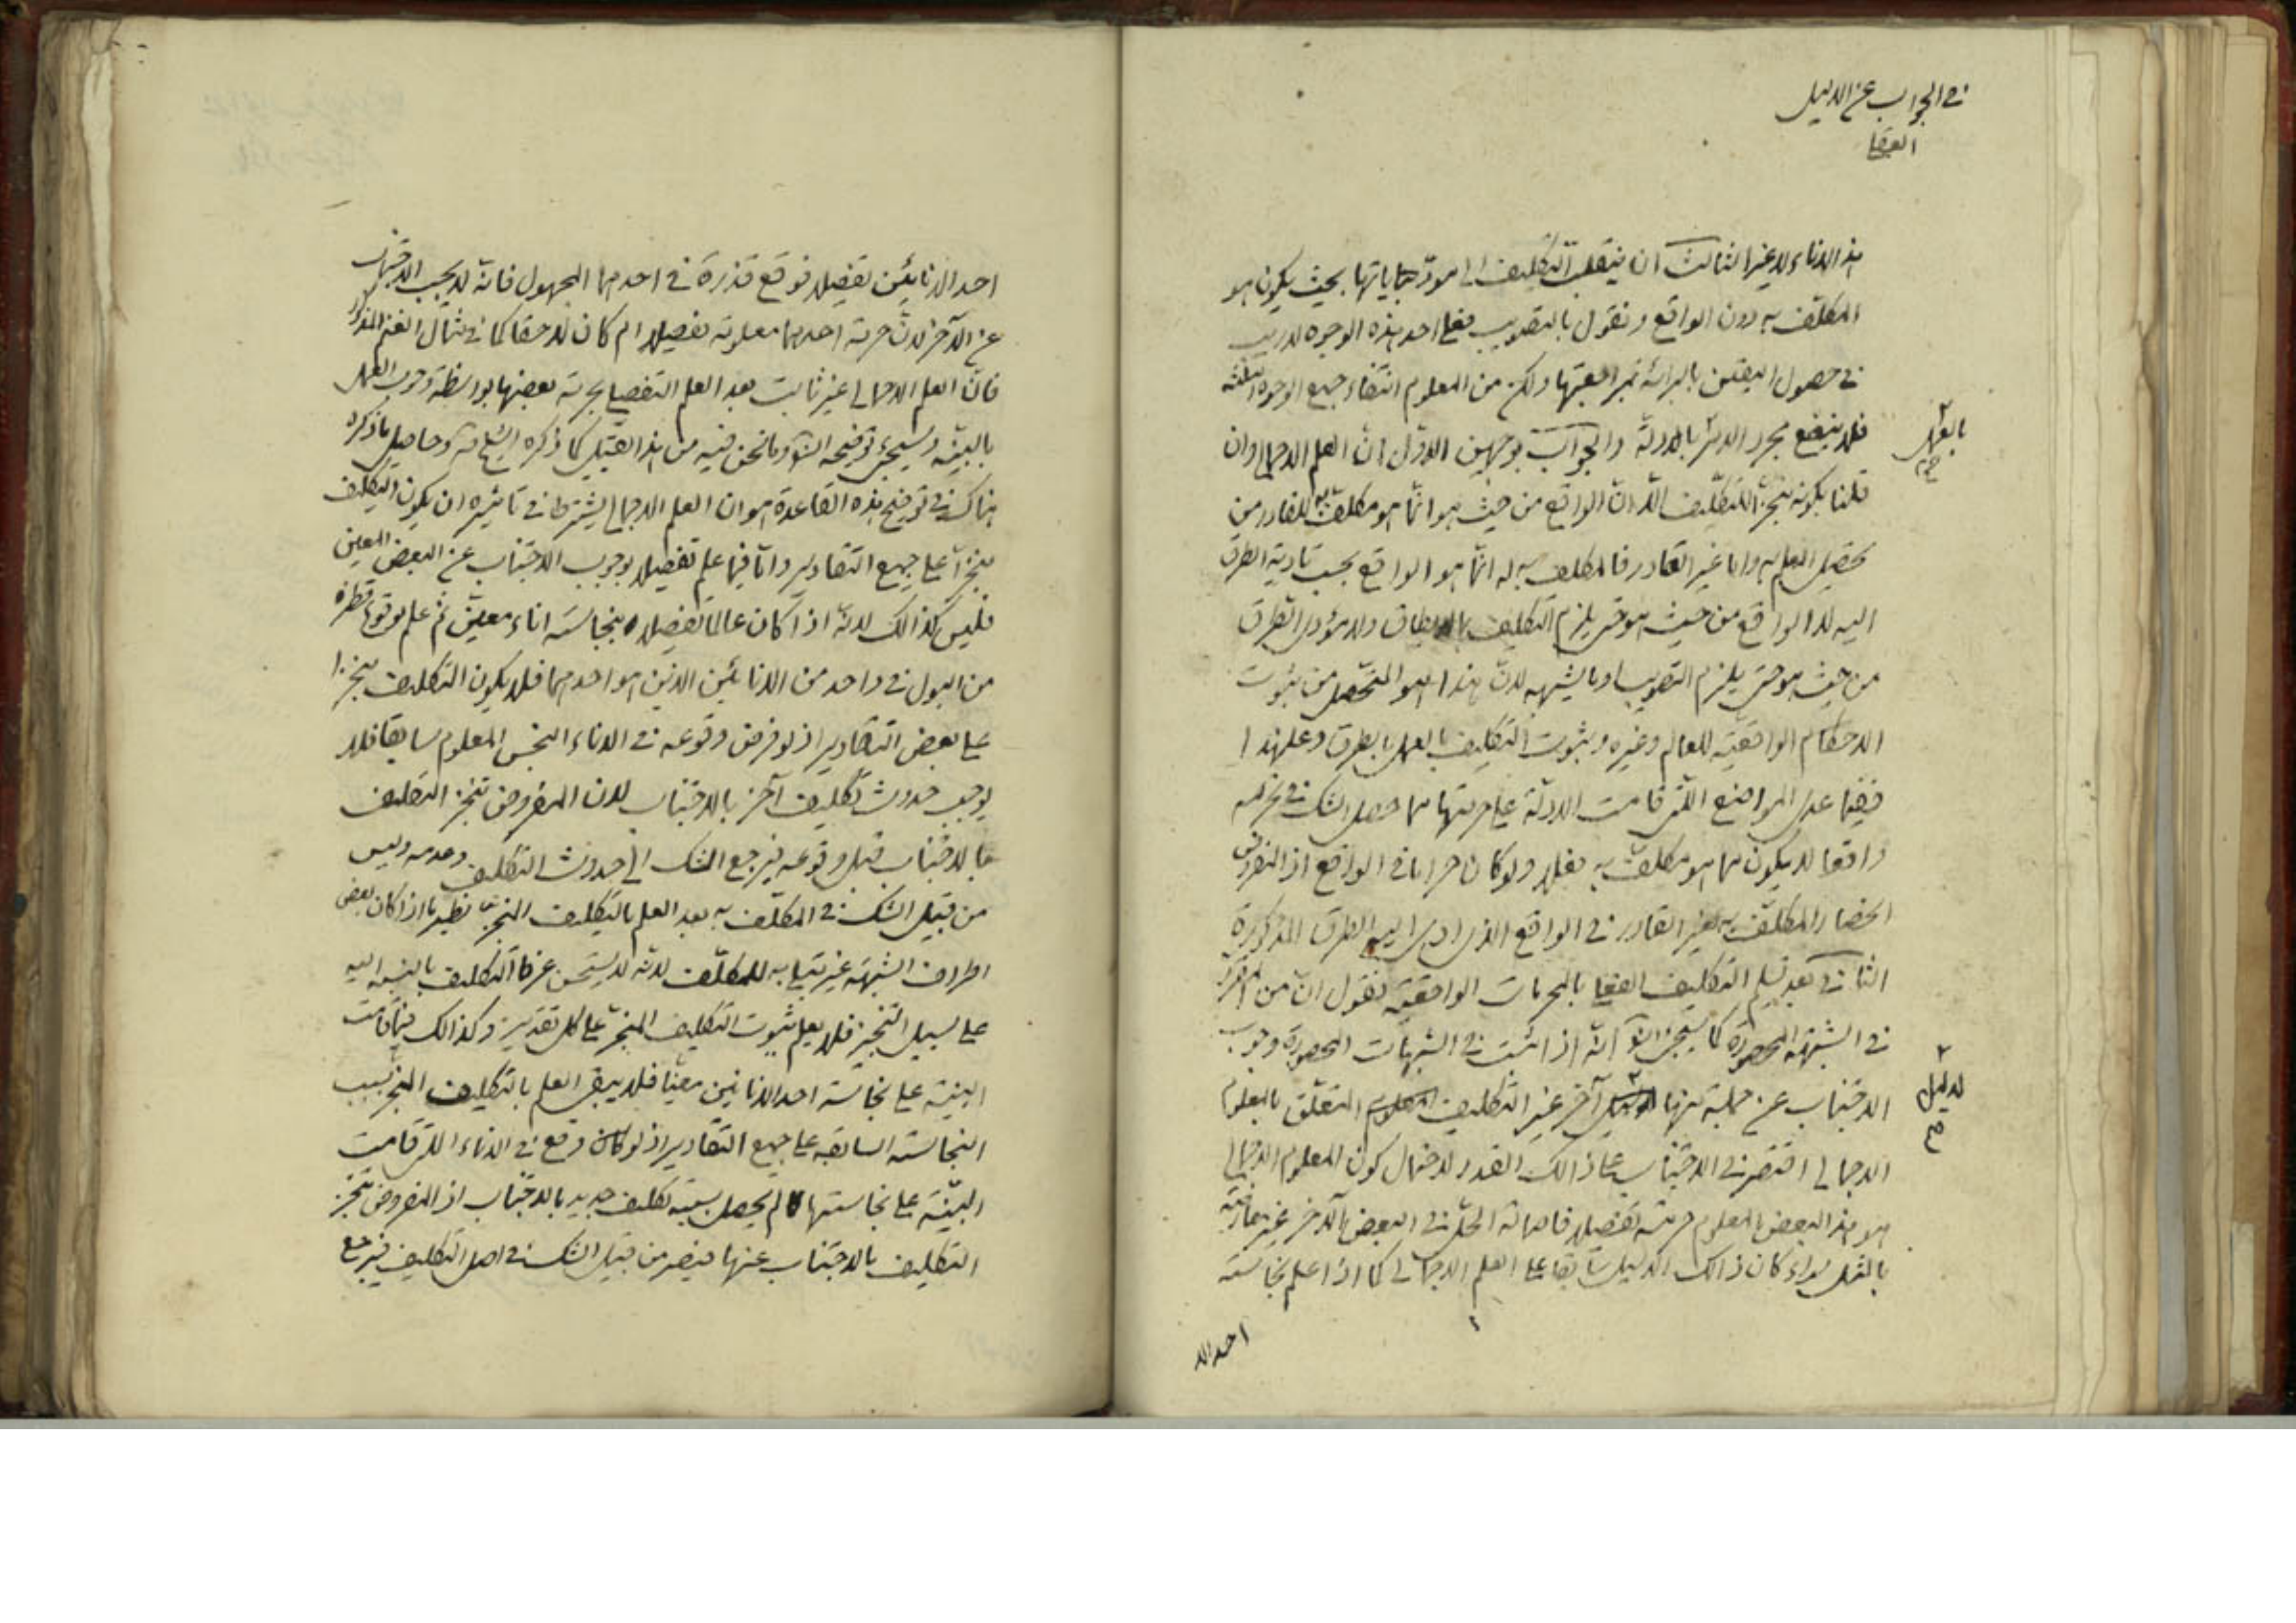 في الجواب عن الدليل
العقلي
هذا الاناء لا غير الثالث ان ينقلب التكليف الى مودياتها بحيث يكون هو
المكلف به دون الواقع ونقول بالتصويب فعلى احد هذه الوجوه لا ريب
في حصول اليقين بالبرائة بمراعتها ولكن من المعلوم انتفاء جميع الوجوه الثلثة
فلا ينفع مجرد الاخذ بالادلة والجواب بوجهين الاول ان العلم الاجمالي وان
بالعمل
صح
قلنا بكونه منجزا للتكليف الا ان الواقع من حيث هو انما هو مكلف به للقادر من
تحصيل العلم به واما غير القادر فالمكلف به له انما هو الواقع بحسب تادية الطرق
اليه لا الواقع من حيث هو حتى يلزم التكليف بما لا يطاق ولا مؤدى الطرق
من حيث هو حتى يلزم التصويب او ما يشبهه لان هذا هو المتحصل من ثبوت
الاحكام الواقعية للعالم وغيره وثبوت التكليف بالعمل بالطرق وعلى هذا
ففيما عدى المواضع التي قامت الادلة على حرمتها مما حصل الشك في تحريمه
واقعا لا يكون مما هو مكلف به فعلا ولو كان حراما في الواقع اذ المفروض
انحصار المكلف به لغير القادر في الواقع الذي ادى اليه الطرق المذكورة
الثاني بعد تسليم التكليف الفعلي بالمحرمات الواقعية نقول ان من المقرر
في الشبهة المحصورة كما سيجئ انشاء الله انه اذا ثبت في الشبهات المحصورة وجوب
الاجتناب عن جملة منها لدليل آخر غير التكليف المتعلق بالمعلوم
لدليل
صح
الاجمالي اقتصر في الاجتناب على ذالك القدر لاحتمال كون المعلوم الاجمالي
هو هذا البعض المعلوم حرمته تفصيلا فاصالة الحل في البعض الآخر غير معارضة
بالمثل سواء كان ذالك الدليل سابقا على العلم الاجمالي كما اذا علم نجاسة
احد الا
احد الانائين تفصيلا فوقع قذرة في احدهما المجهول فانه لا يجب الاجتناب
عن الآخر لان حرمة احدهما معلومة تفصيلا ام كان لاحقا كما في مثال الغنم المذكور
فان العلم الاجمالي غير ثابت بعد العلم التفصيلي بحرمة بعضها بواسطة وجوب العمل
بالبينة وسيجئ توضيحه انشاء الله وما نحن فيه من هذا القبيل كما ذكره الشيخ قده وحاصل ما ذكره
هناك في توضيح هذه القاعدة هو ان العلم الاجمالي يشترط في تاثيره ان يكون التكليف
منجزا على جميع التقادير واما فيما علم تفصيلا بوجوب الاجتناب عن البعض المعين
فليس كذالك لانه اذا كان عالما تفصيلا بنجاسة اناء معين ثم علم بوقوع قطرة
من البول في واحد من الانائين الذين هو احدهما فلا يكون التكليف منجزا
على بعض التقادير اذ لو فرض وقوعه في الاناء النجس المعلوم سابقا فلا
يوجب حدوث تكليف آخر بالاجتناب لان المفروض تنجز التكليف
بالاجتناب قبل وقوعه فيرجع الشك الى حدوث التكليف وعدمه وليس
من قبيل الشك في المكلف به بعد العلم بالتكليف المنجز نظير ما اذا كان بعض
اطراف الشبهة غير مبتلى به للمكلف لانه لا يستحسن عرفا التكليف بالنسبة اليه
على سبيل التنجيز فلا يعلم ثبوت التكليف المنجز على كل تقدير وكذالك فيما قامت
البينة على نجاسة احد الانائين معينا فلا يبقى العلم بالتكليف المنجز بسبب
النجاسة السابقة على جميع التقادير اذ لو كان وقع في الاناء التي قامت
البينة على نجاستها لم يحصل بسببه تكليف جديد بالاجتناب اذ المفروض تنجز
التكليف بالاجتناب عنها فيصير من قبيل الشك في اصل التكليف فيرجع